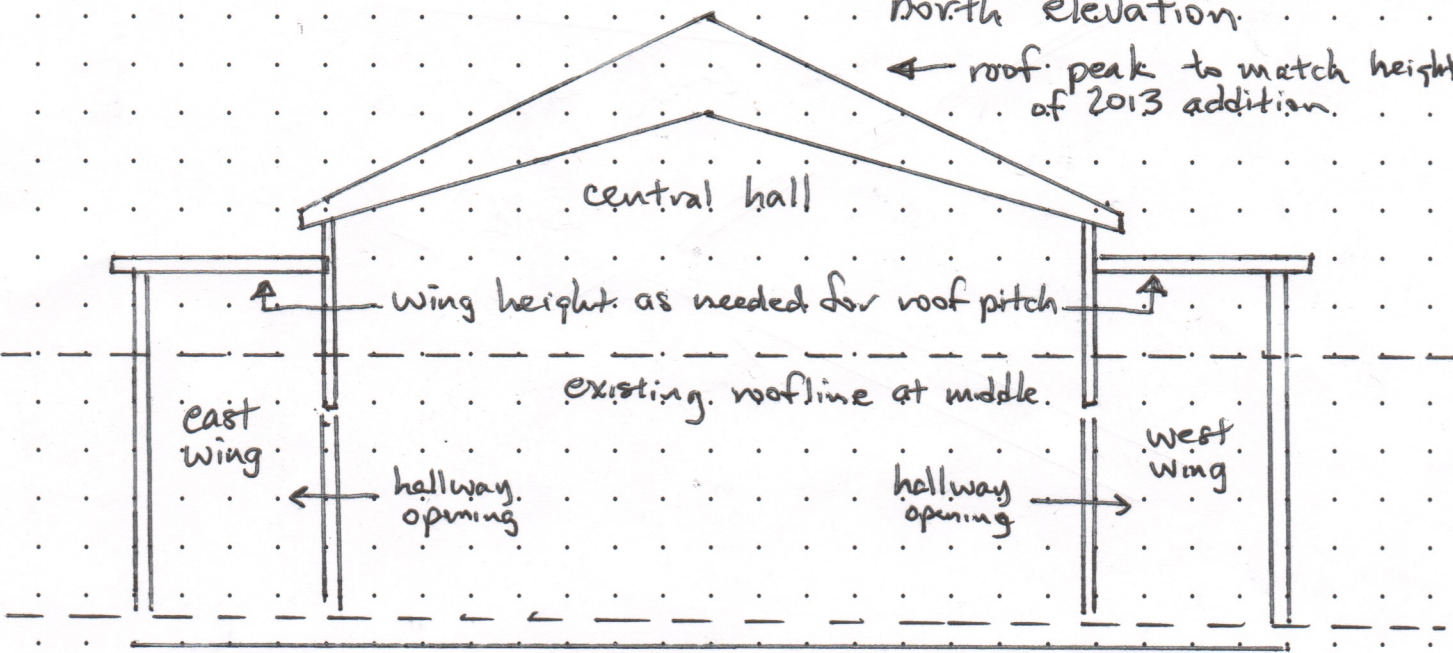 north elevation
← roof peak to match height
of 2013 addition.
central hall
wing height as needed for roof pitch
existing roofline at middle.
east
wing
west
wing
hallway
opening
hallway
opening